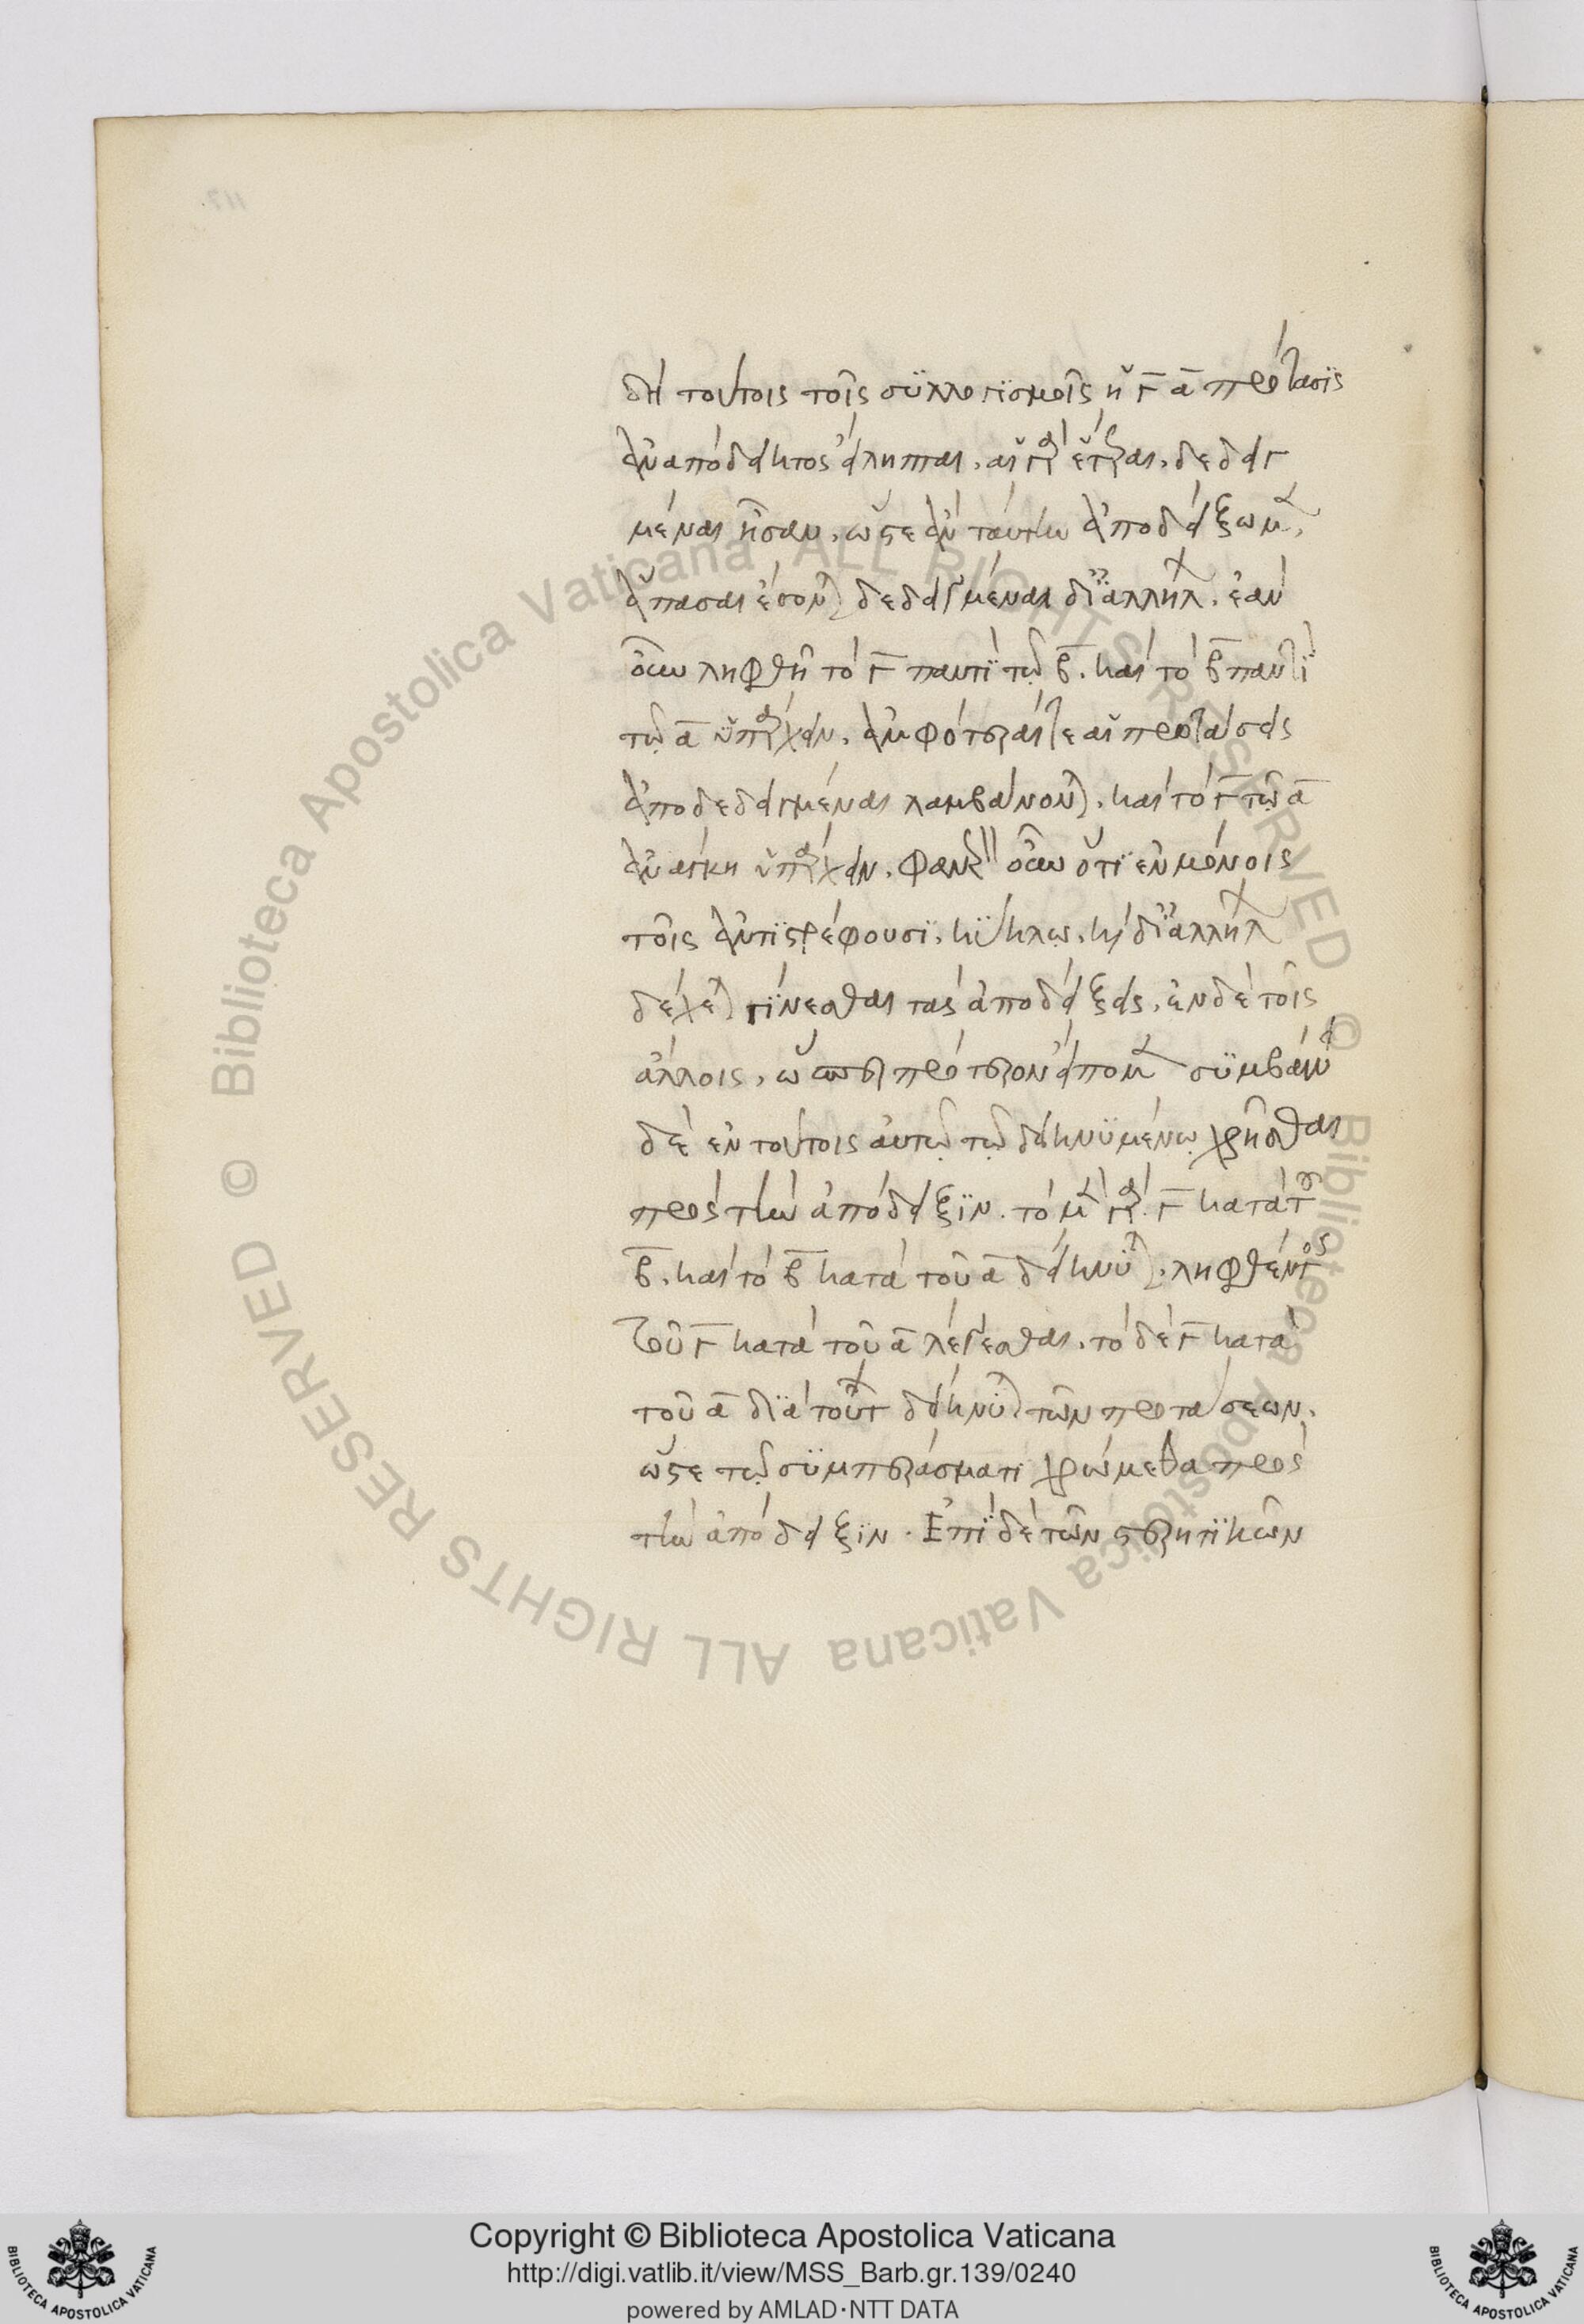 δὴ τούτοις τοῖς συλλογισμοῖς ἡ Γ Α πρότασις
ἀναπόδεικτος εἴληπται. αἱ γὰρ ἕτεραι, δεδειγ
μέναι ἦσαν. ὥστε ἂν ταύτην ἀποδείξωμεν,
ἅπασαι ἔσονται δεδειγμέναι δι' ἀλλήλων. ἐὰν
οὖν ληφθῇ τὸ Γ παντὶ τῷ Β. καὶ τὸ Β παντὶ
τῷ Α ὑπάρχειν. ἀμφότεραί τε αἱ προτάσεις
ἀποδεδειγμέναι λαμβάνονται. καὶ τὸ Γ τῷ Α
ἀνάγκη ὑπάρχειν. φανερὸν οὖν ὅτι ἐν μόνοις
τοῖς ἀντιστρέφουσι, κύκλῳ, καὶ δι' ἀλλήλων
δέχεται γίνεσθαι τὰς ἀποδείξεις. ἐν δὲ τοῖς
ἄλλοις, ὡς πρότερον εἴπομεν συμβαίνει
δὲ ἐν τούτοις αὐτῷ τῷ δεικνυμένῳ χρῆσθαι
πρὸς τὴν ἀπόδειξιν. τὸ μὲν γὰρ Γ κατὰ τοῦ
Β. καὶ τὸ Β κατὰ τοῦ Α δείκνυται. ληφθέντος
τοῦ Γ κατὰ τοῦ Α λέγεσθαι. τὸ δὲ Γ κατὰ
τοῦ Α διὰ τούτων δείκνυται τῶν προτάσεων.
ὥστε τῷ συμπεράσματι χρώμεθα πρὸς
τὴν ἀπόδειξιν. Ἐπὶ δὲ τῶν στερητικῶν
Copyright © Biblioteca Apostolica Vaticana
http://digi.vatlib.it/view/MSS_Barb.gr.139/0240
powered by AMLAD·NTT DATA
© Biblioteca Apostolica Vaticana ALL RIGHTS RESERVED © Biblioteca Apostolica Vaticana ALL RIGHTS RESERVED
BIBLIOTECA APOSTOLICA VATICANA
BIBLIOTECA APOSTOLICA VATICANA